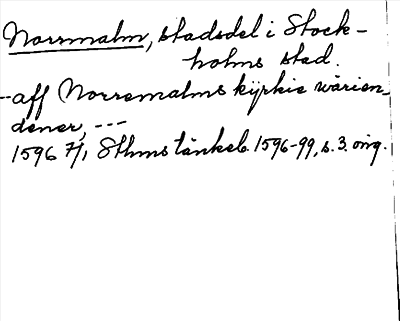 Norrmalm, stadsdel i Stock-
holms stad.
--aff Norremalms kyrkie wärien
dener, ---
1596 7/1 Sthms tänkeb. 1596-99, s. 3. orig.